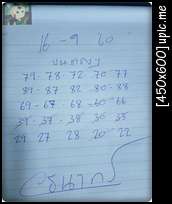 16 - 9 60
79 - 78 - 72 - 70 - 77
89 - 87 82 - 80 - 88
69 - 67 - 68 - 60 - 66
39 - 37 - 38 - 30 - 33
29 27 28 20 - 22
[450x600] upic.me